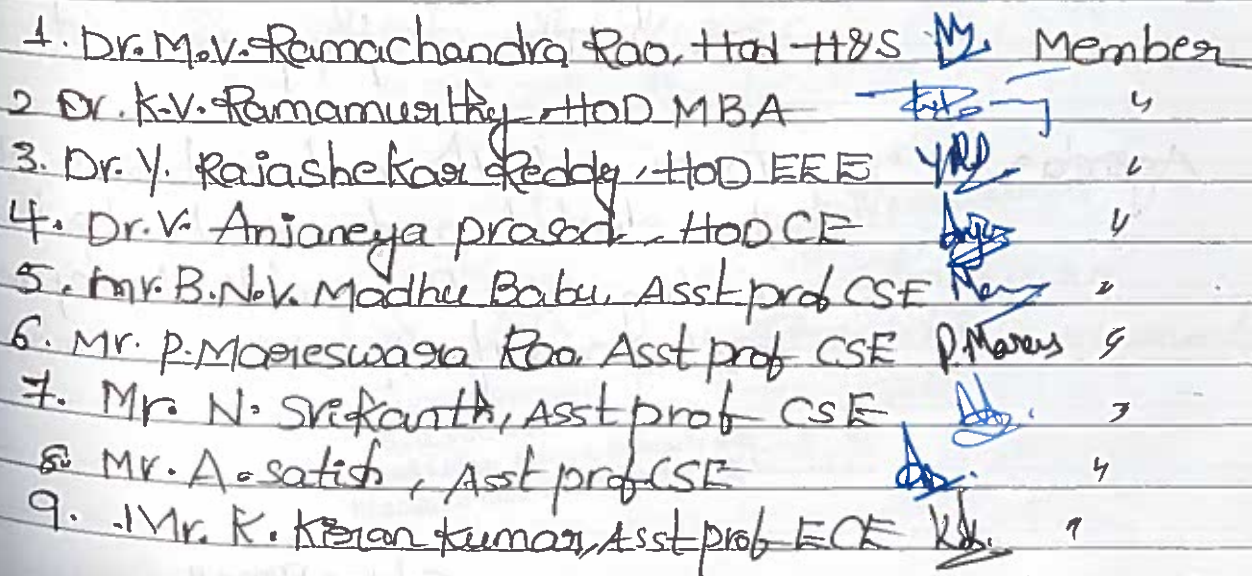 1. Dr. M.V. Ramachandra Rao, Hod H&S Member
2 Dr. K.V. Ramamurthy, HoD MBA "
3. Dr. Y. Rajashekar Reddy, HoD EEE "
4. Dr. V. Anjaneya prasad, HoD CE "
5. Mr. B.N.V. Madhu Babu, Asst prof CSE "
6. Mr. P. Mareswara Rao, Asst prof CSE P.Mares "
7. Mr. N. Srikanth, Asst prof CSE "
8. Mr. A. satish, Asst prof CSE "
9. Mr. K. Kiran kumar, Asst prof ECE "